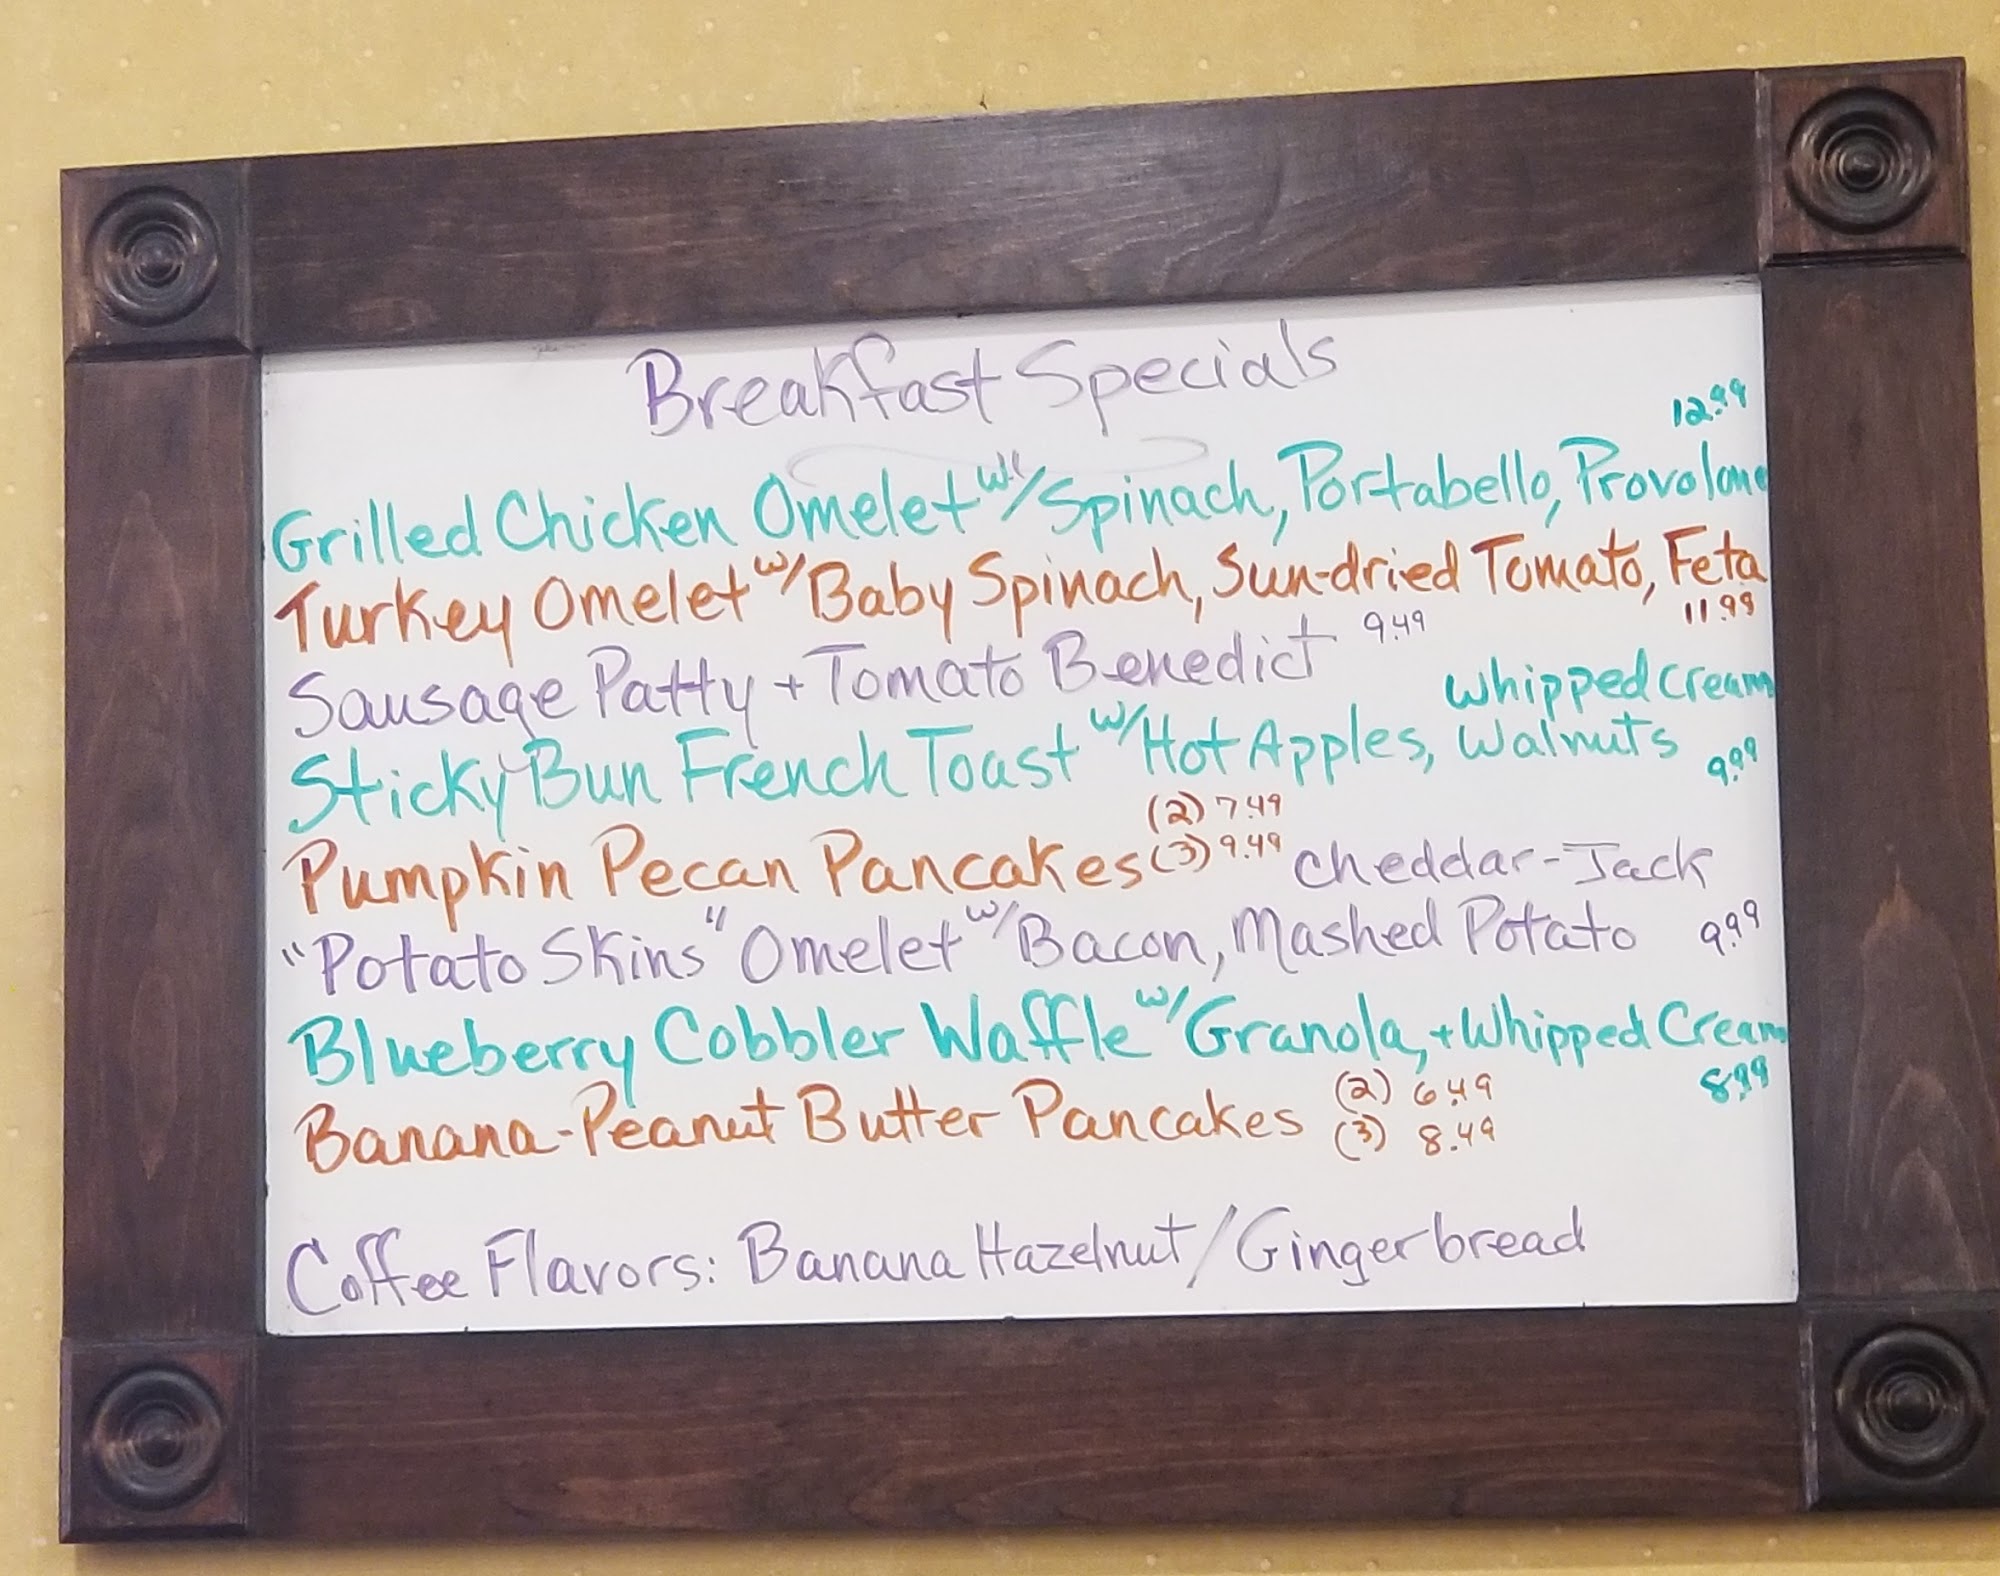 Breakfast Specials
12.99
Grilled Chicken Omelet w/ Spinach, Portabello, Provolone
Turkey Omelet w/ Baby Spinach, Sun-dried Tomato, Feta
11.99
Sausage Patty + Tomato Benedict 9.49
whipped cream
Sticky Bun French Toast w/ Hot Apples, Walnuts 9.99
(2) 7.49
Pumpkin Pecan Pancakes (3) 9.49
Cheddar-Jack
"Potato Skins" Omelet w/ Bacon, Mashed Potato 9.99
Blueberry Cobbler Waffle w/ Granola, + Whipped Cream
8.99
Banana-Peanut Butter Pancakes (2) 6.49
(3) 8.49
Coffee Flavors: Banana Hazelnut/Gingerbread